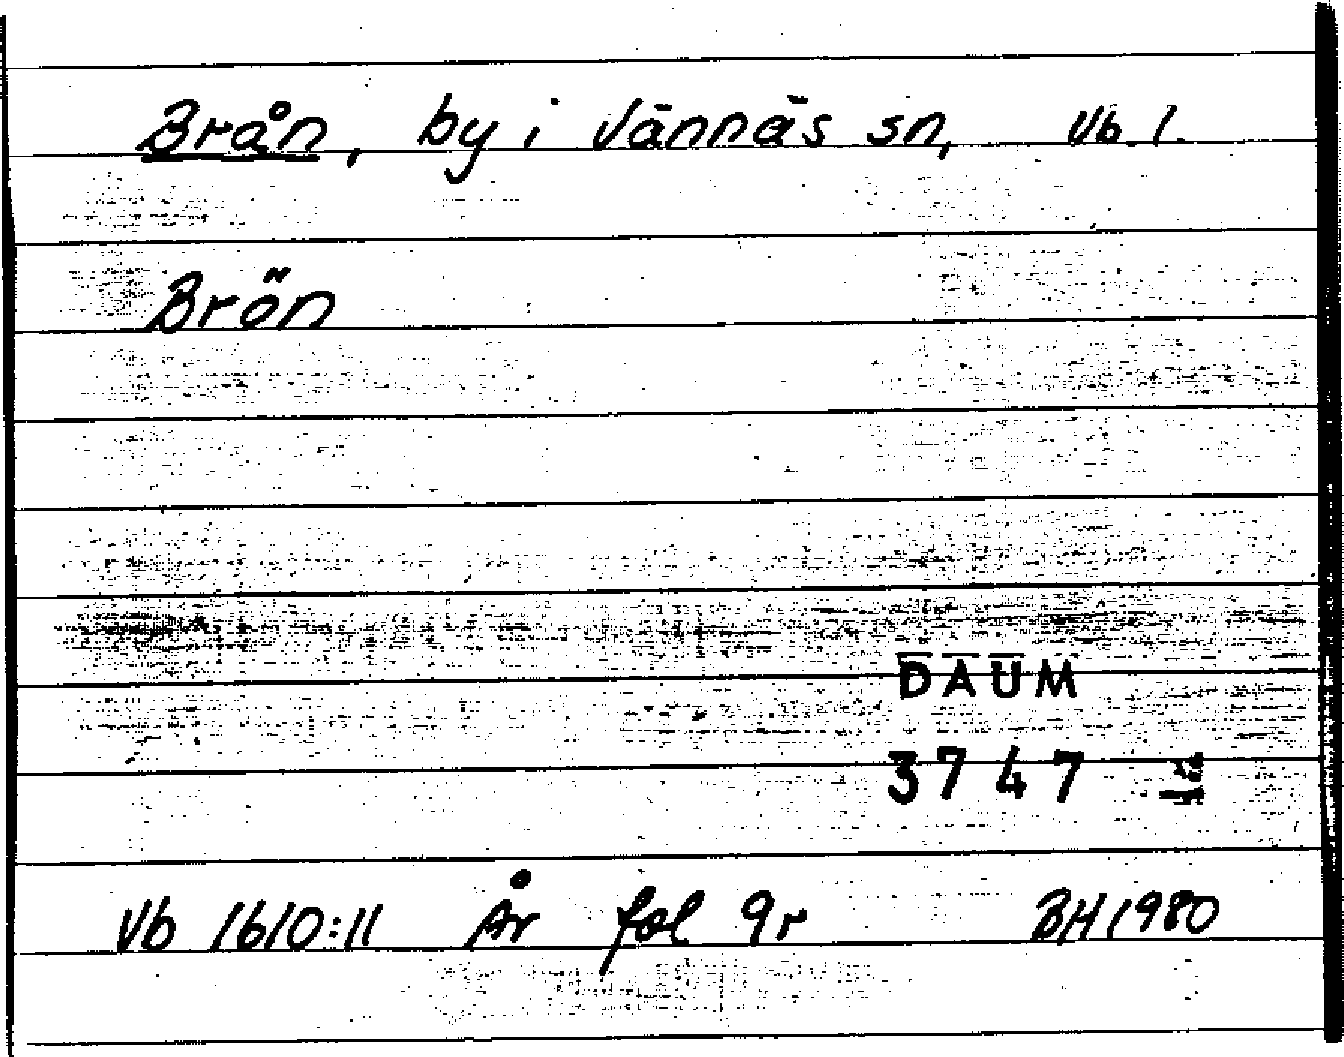 Brån, by i Vännäs sn, Vb. l.
Brön
DAUM
3747
Vb 1610:11 År fol 9r BH 1980